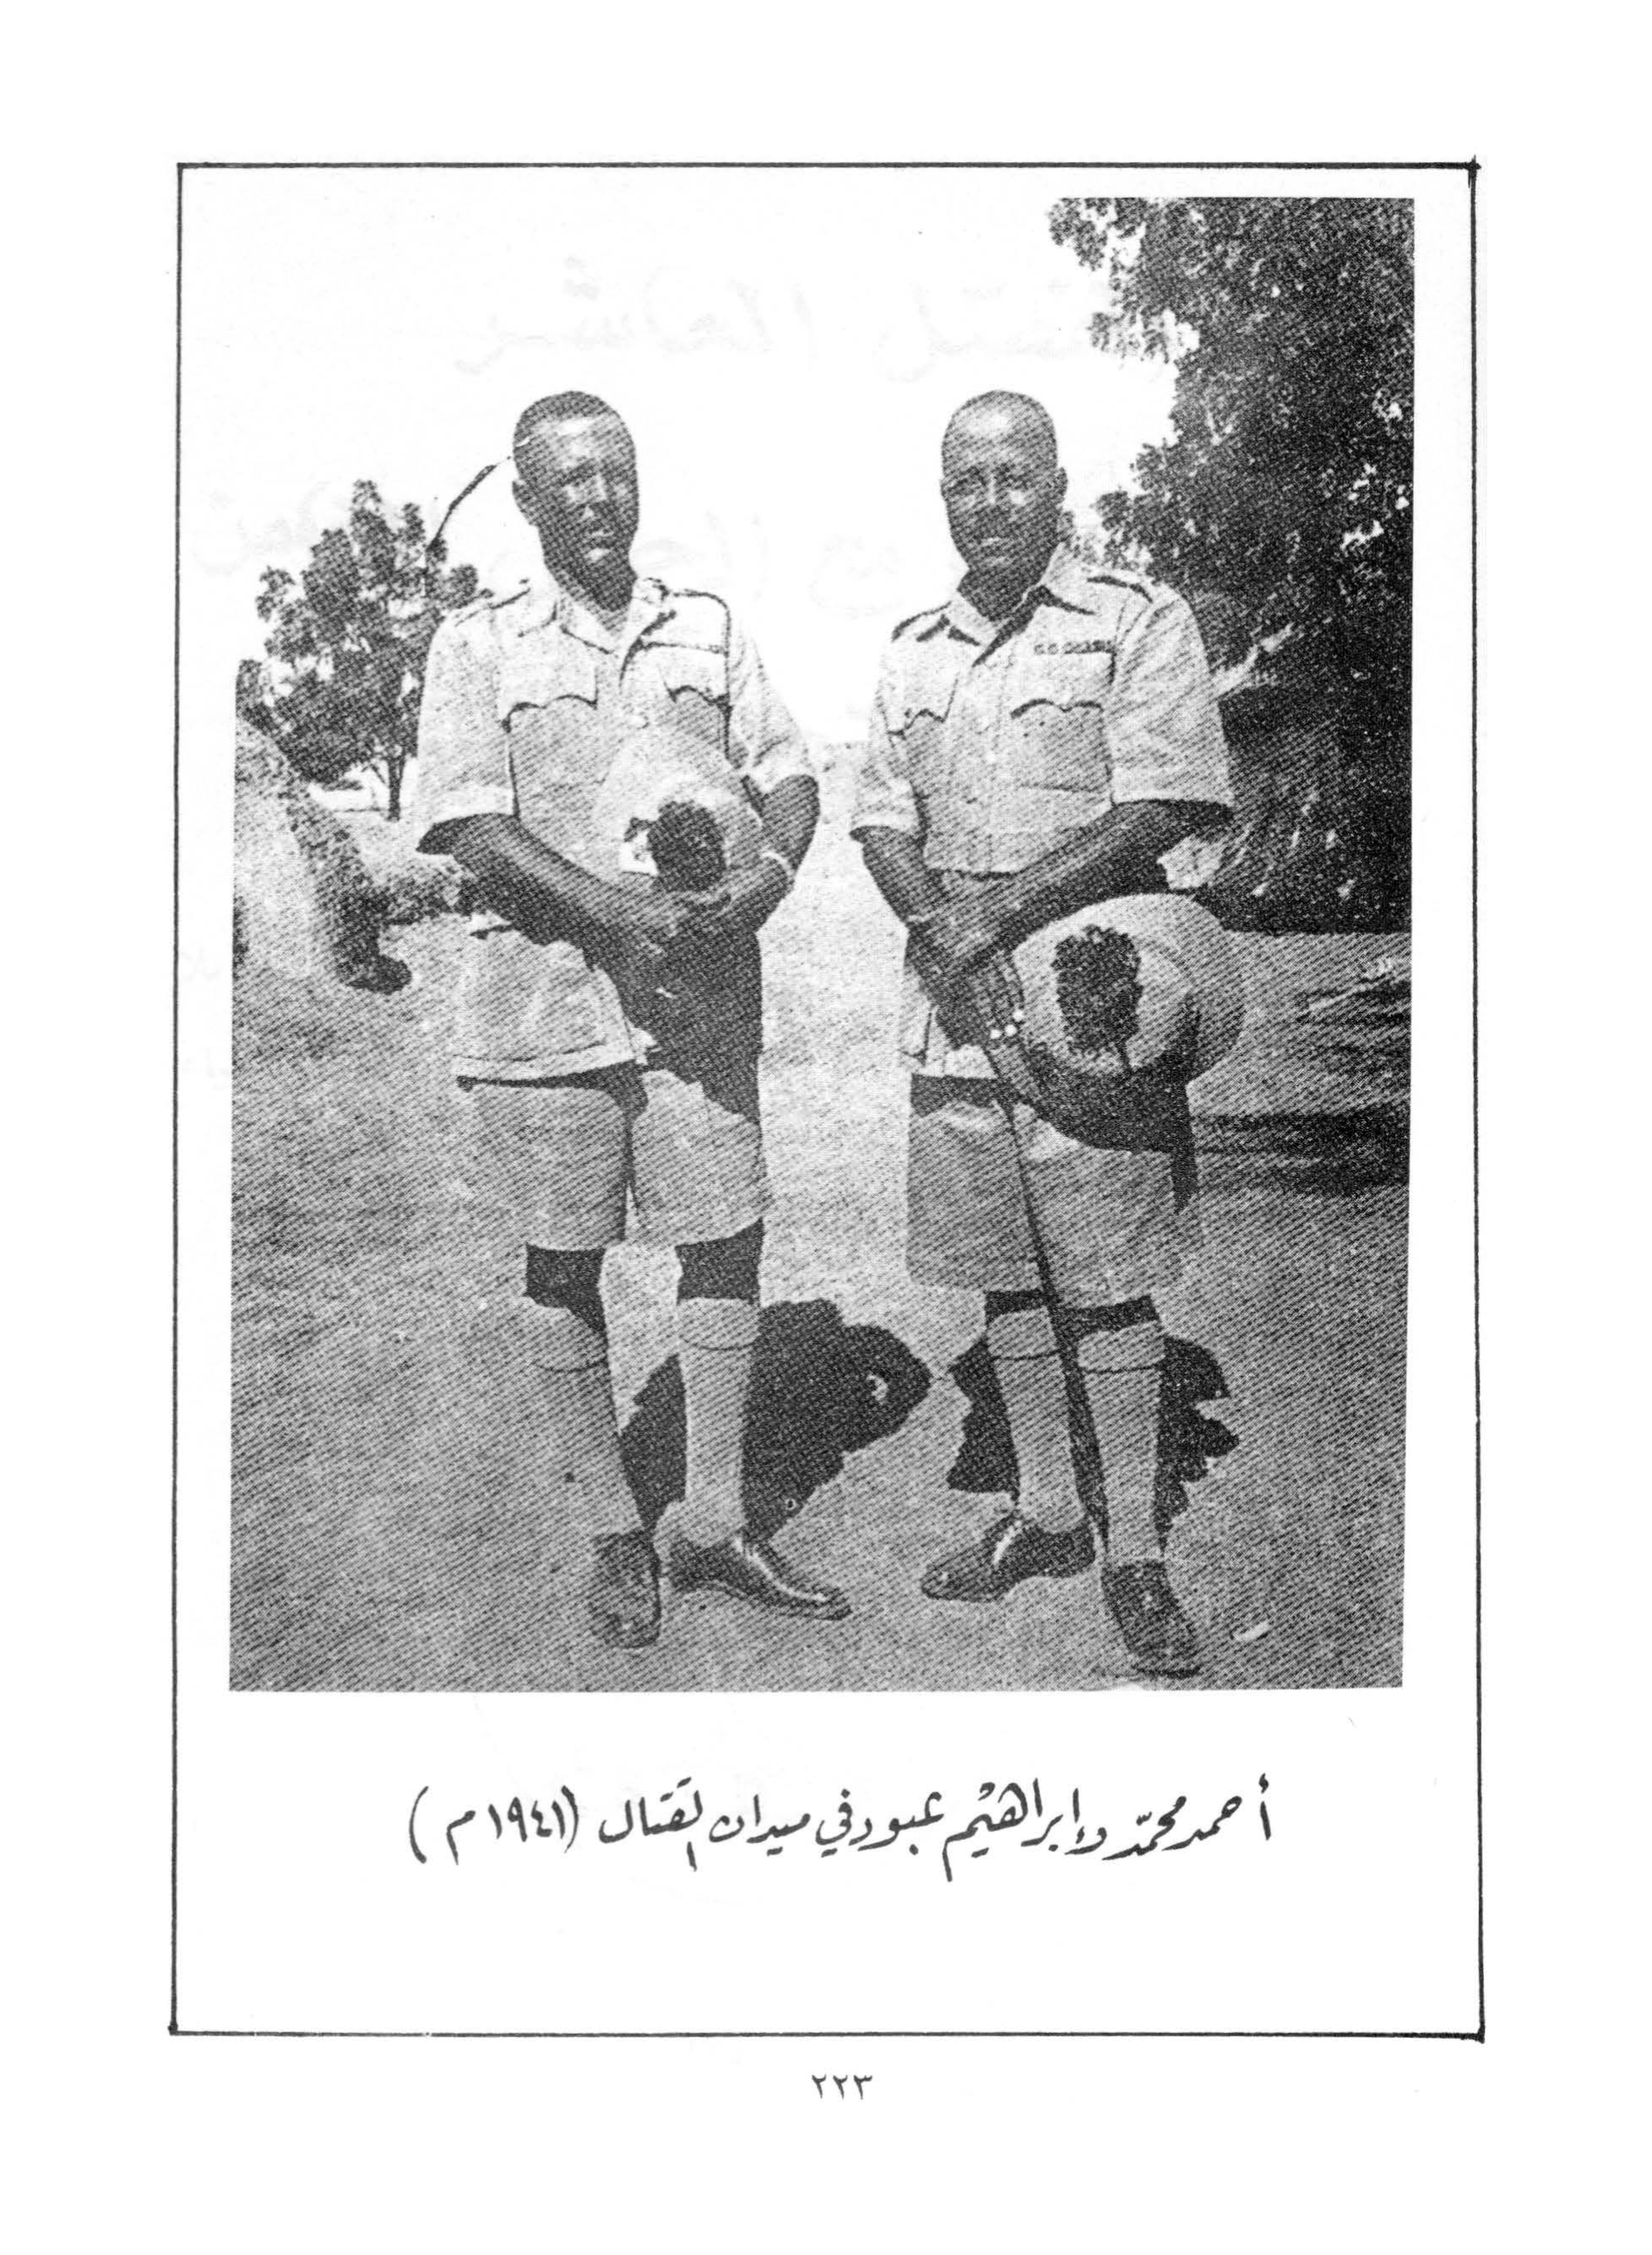 أحمد محمّد وإبراهيم عبود في ميدان القتال (١٩٤١ م)
٢٢٣